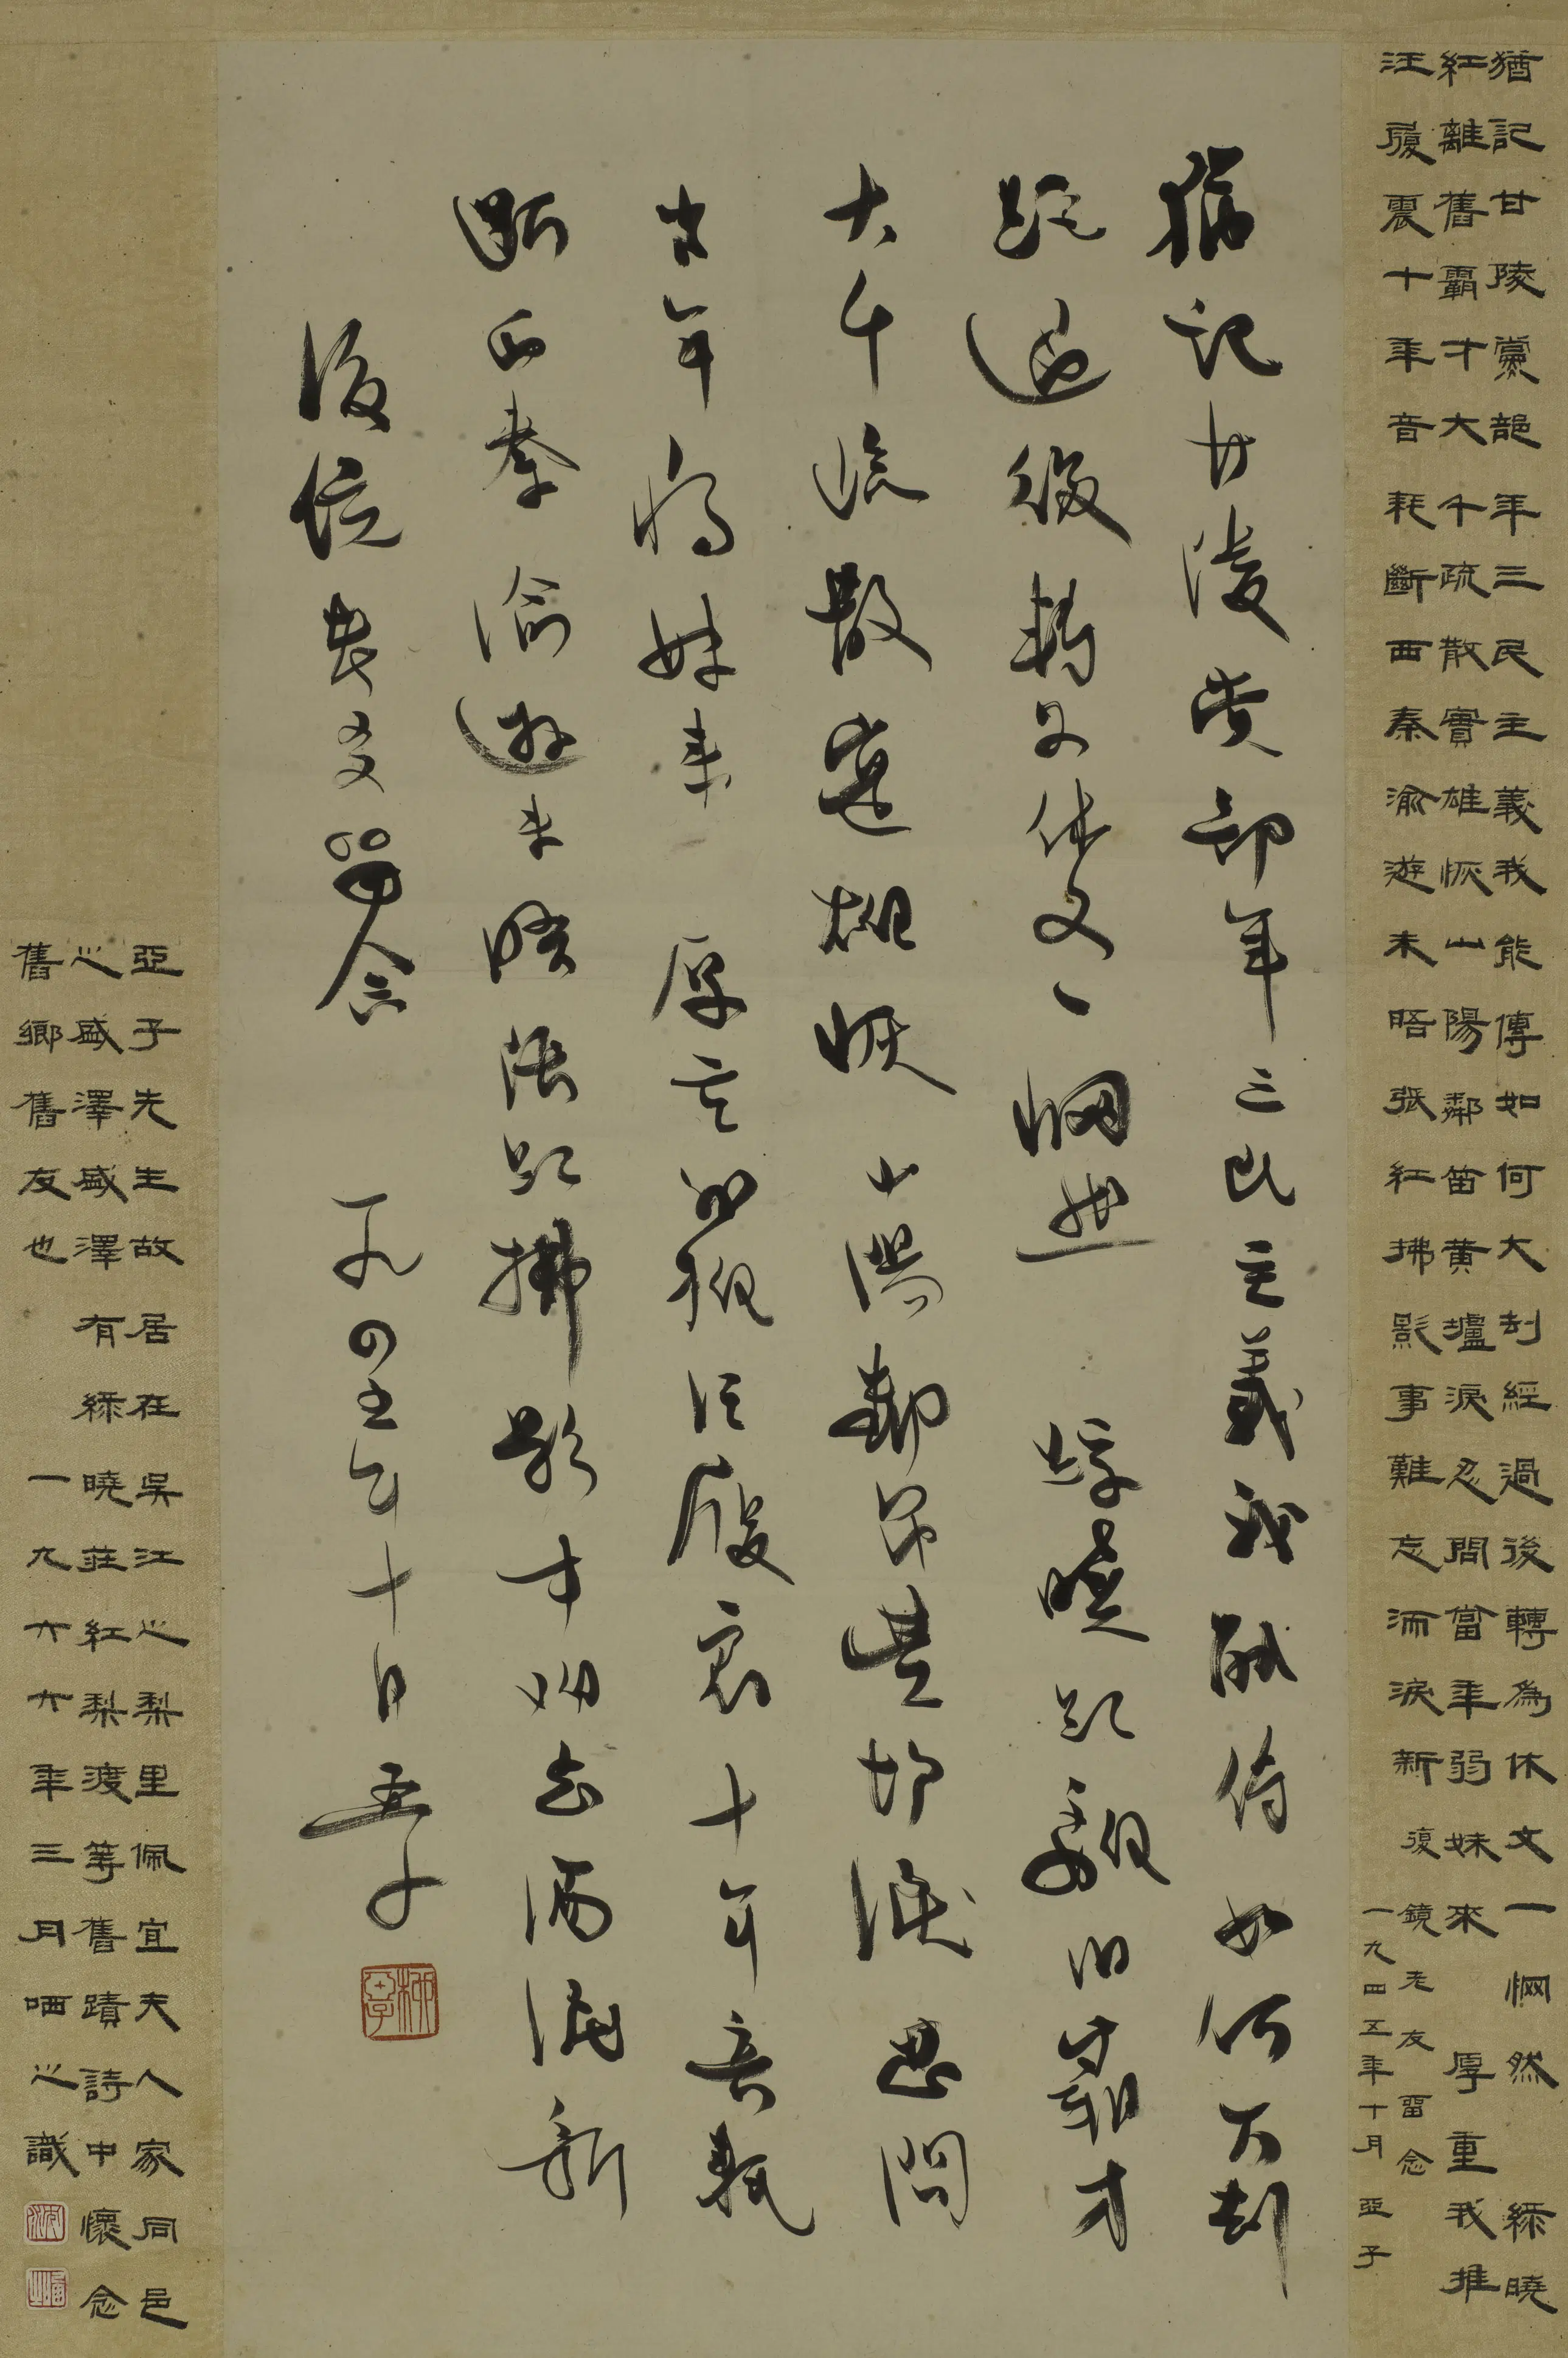 猶記甘陵黨部年三民主義我能傳如何大刦經過後轉為休文一惘然 綵曉
紅離舊霸才大千疏散實雄恢山陽鄰笛黃壚淚忍問當年弱妹來 厚重我推
汪履震十年音耗斷西秦渝遊未晤張紅拂影事難忘濡淚新 復鏡老友留念
一九四五年十月 亞子
猶記甘陵黨部年三民主義我能傳如何大刦
經過後轉為休文一惘然 綵曉紅離舊霸才
大千疏散實雄恢山陽鄰笛黃壚淚忍問
當年弱妹來 厚重我推汪履震十年音耗
斷西秦渝遊未晤張紅拂影事難忘濡淚新
復鏡老友留念 一九四五年十月亞子
柳亞子
亞子先生故居在吳江之梨里佩宜夫人家同邑
之盛澤盛澤有綵曉莊紅梨渡等舊蹟詩中懷念
舊鄉舊友也 一九六六年三月哂之識